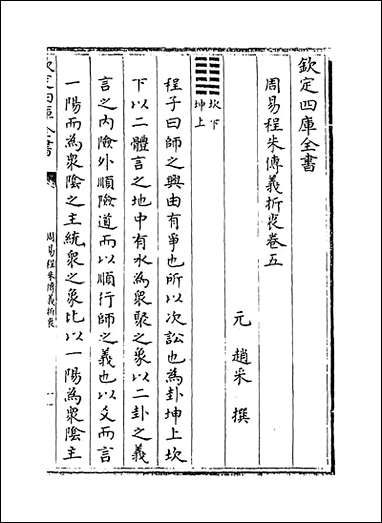 欽定四庫全書
周易程朱傳義折衷卷五
元 趙采 撰
坎下
坤上
程子曰師之興由有爭也所以次訟也為卦坤上坎
下以二體言之地中有水為衆聚之象以二卦之義
言之内險外順險道而以順行師之義也以爻而言
一陽而為衆陰之主統衆之象比以一陽為衆陰主
欽定四庫全書
周易程朱傳義折衷
一